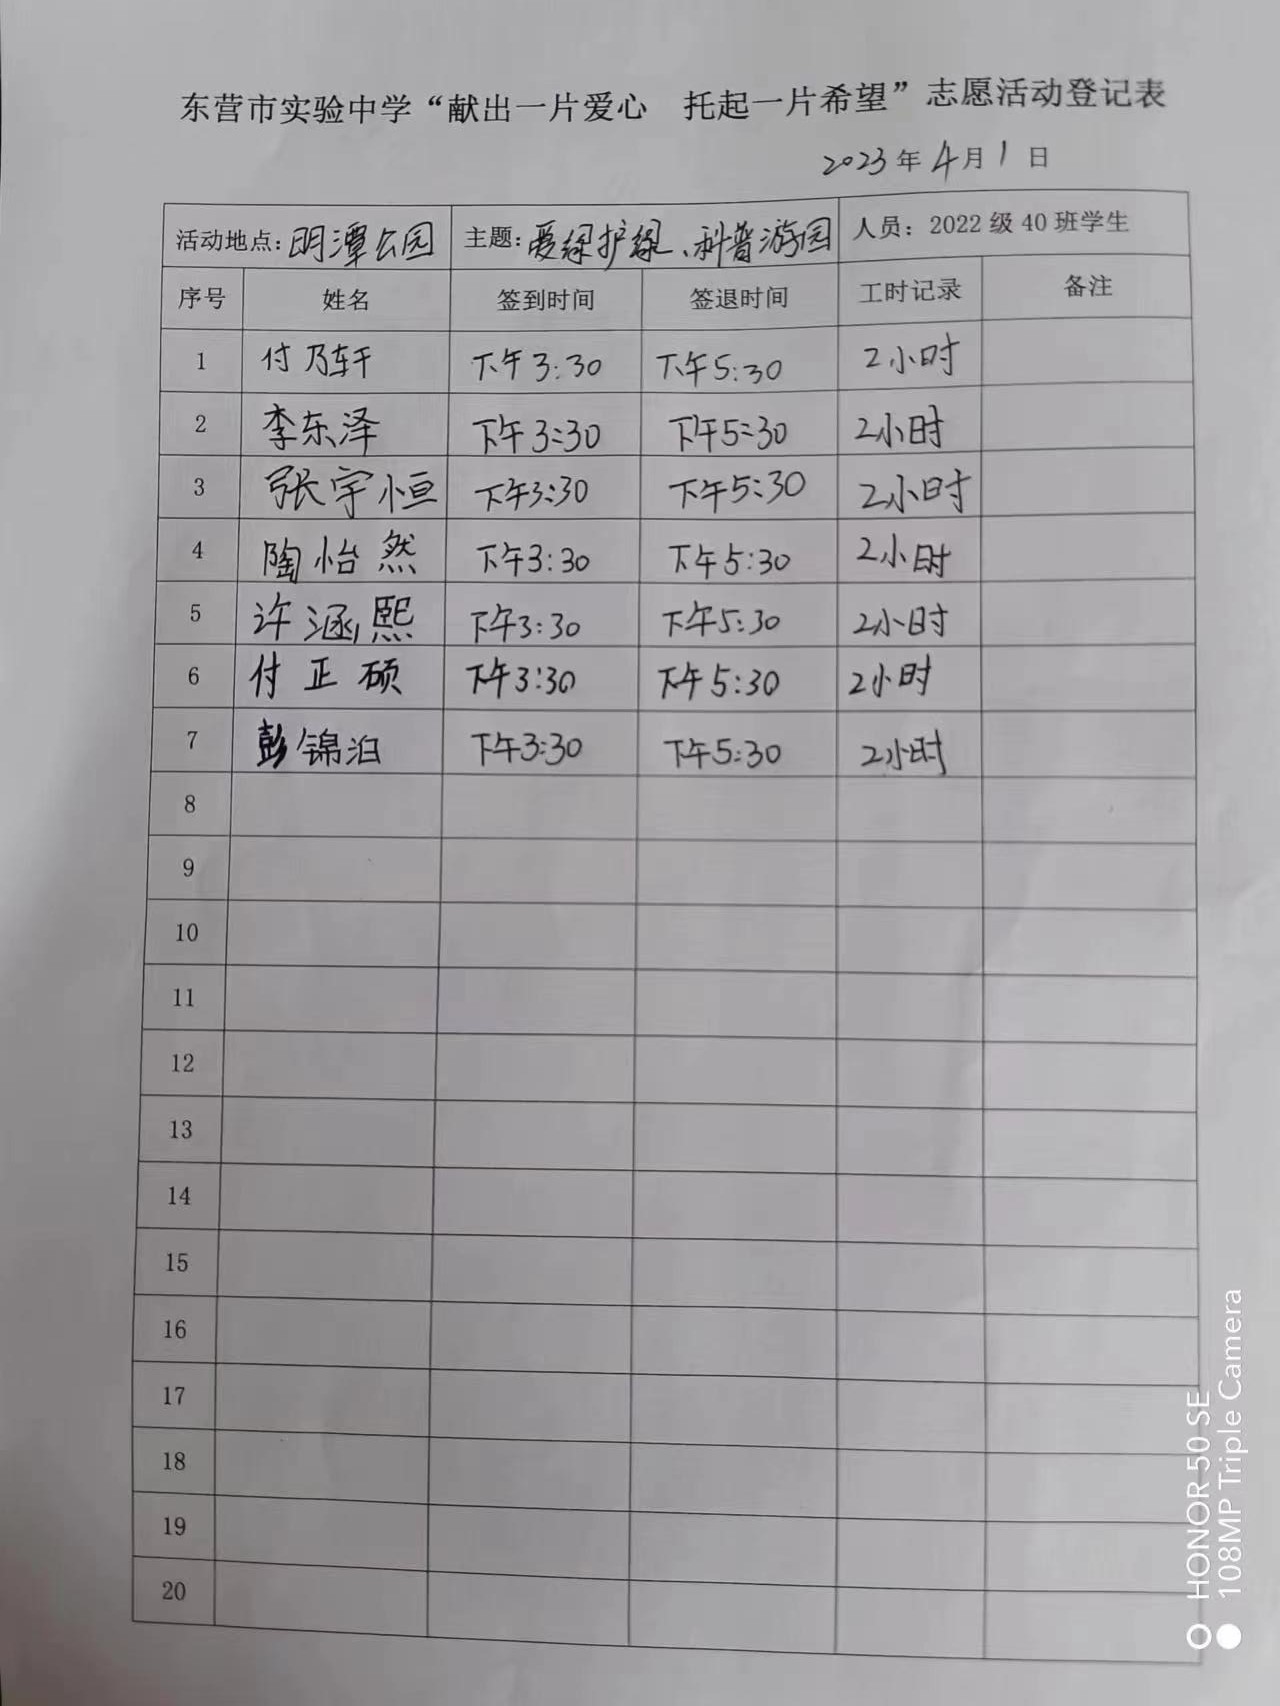 东营市实验中学“献出一片爱心 托起一片希望”志愿活动登记表
2023年4月1日
活动地点:明潭公园 主题:爱绿护绿、科普游园 人员:2022级40班学生
序号 姓名 签到时间 签退时间 工时记录 备注
1 付乃轩 下午3:30 下午5:30 2小时
2 李东泽 下午3:30 下午5:30 2小时
3 张宇恒 下午3:30 下午5:30 2小时
4 陶怡然 下午3:30 下午5:30 2小时
5 许涵熙 下午3:30 下午5:30 2小时
6 付正硕 下午3:30 下午5:30 2小时
7 彭锦泊 下午3:30 下午5:30 2小时
8
9
10
11
12
13
14
15
16
17
18
19
20
HONOR 50 SE
108MP Triple Camera